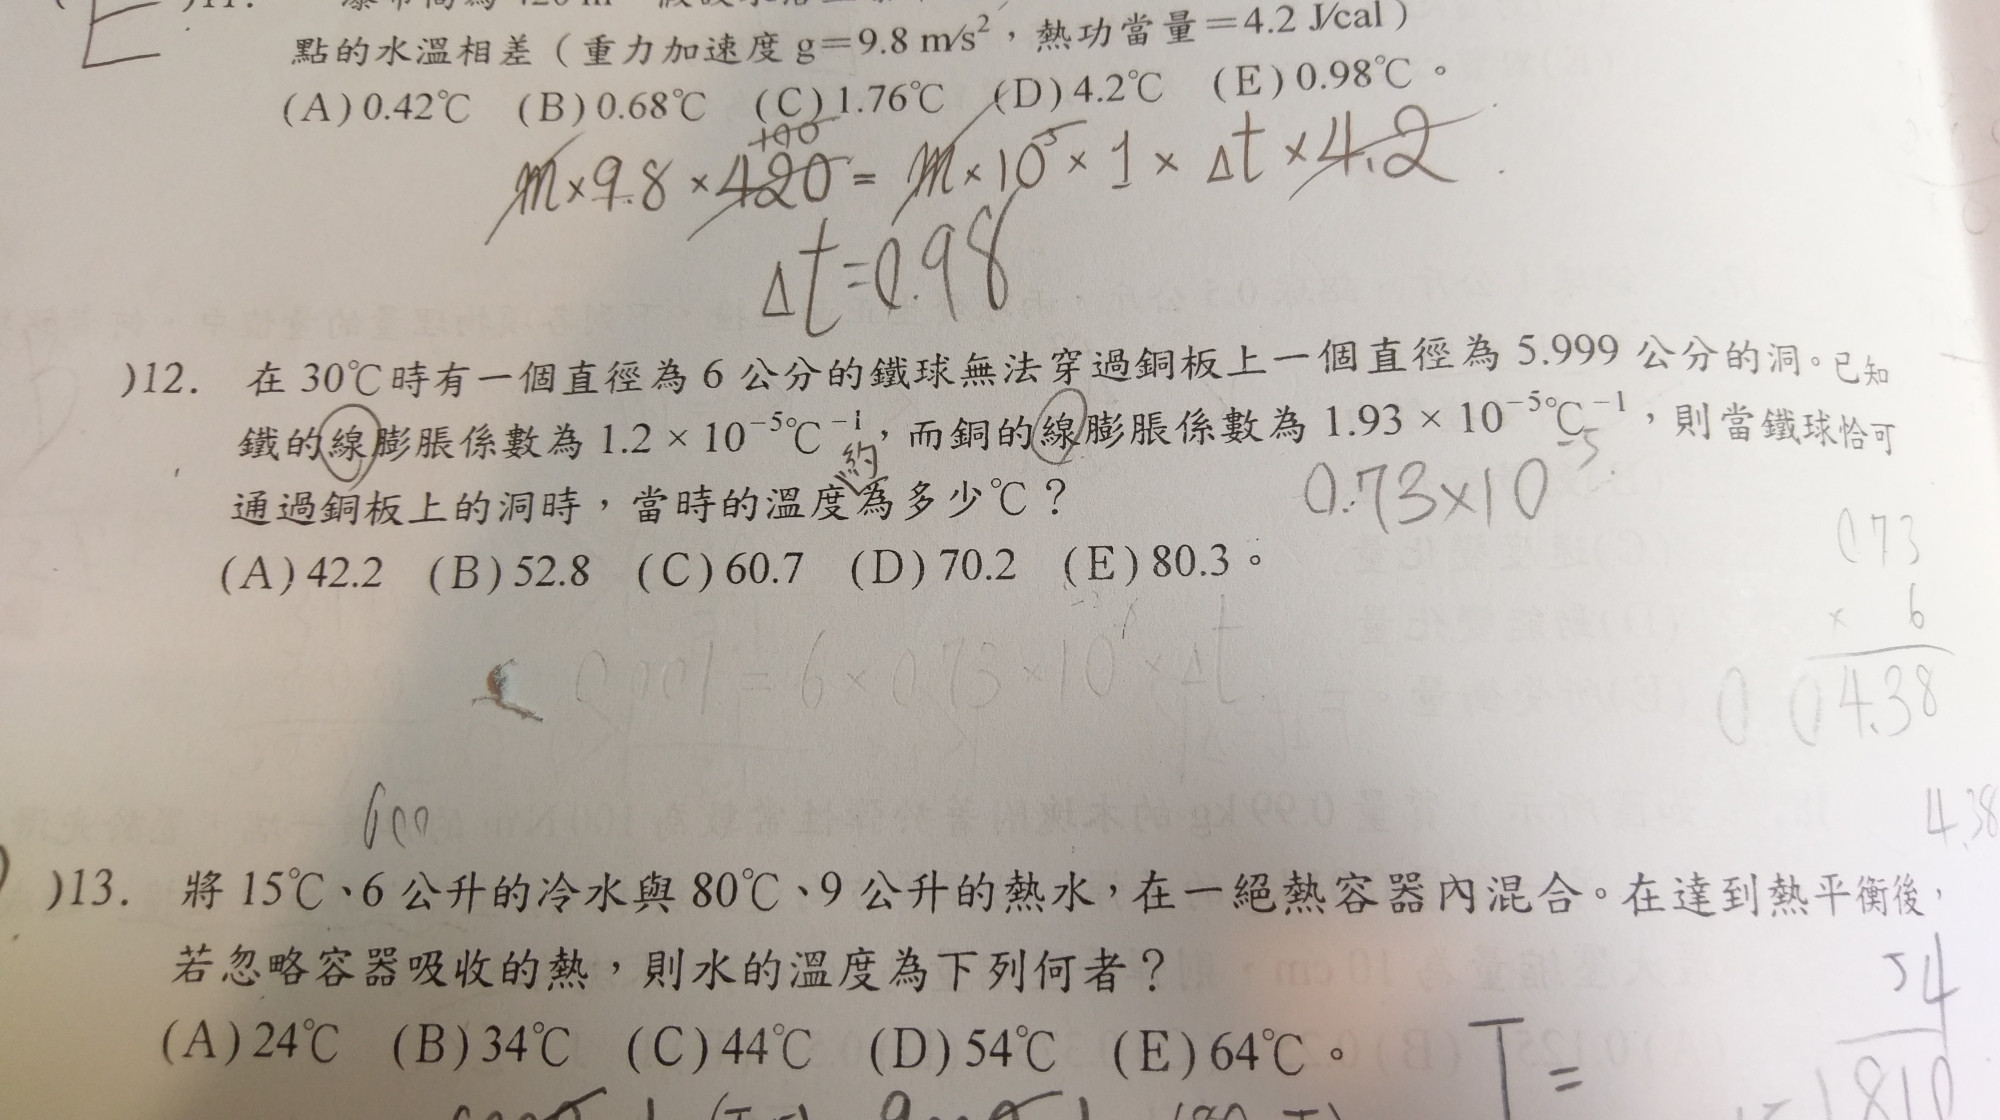 點的水溫相差(重力加速度 g=9.8 m/s²,熱功當量=4.2 J/cal)
(A)0.42℃ (B)0.68℃ (C)1.76℃ (D)4.2℃ (E)0.98℃。
100
m×9.8×420=m×10³×1×Δt×4.2
Δt=0.98
)12. 在 30℃時有一個直徑為 6 公分的鐵球無法穿過銅板上一個直徑為 5.999 公分的洞。已知
鐵的線膨脹係數為 1.2 × 10⁻⁵℃⁻¹,而銅的線膨脹係數為 1.93 × 10⁻⁵℃⁻¹,則當鐵球恰可
約
通過銅板上的洞時,當時的溫度為多少℃?
0.73×10⁻⁵
(A)42.2 (B)52.8 (C)60.7 (D)70.2 (E)80.3。
073
× 6
0 04.38
0.001=6×0.73×10 ×Δt
600
4.38
)13. 將 15℃、6 公升的冷水與 80℃、9 公升的熱水,在一絕熱容器內混合。在達到熱平衡後,
若忽略容器吸收的熱,則水的溫度為下列何者?
54
(A)24℃ (B)34℃ (C)44℃ (D)54℃ (E)64℃。
T=
1810